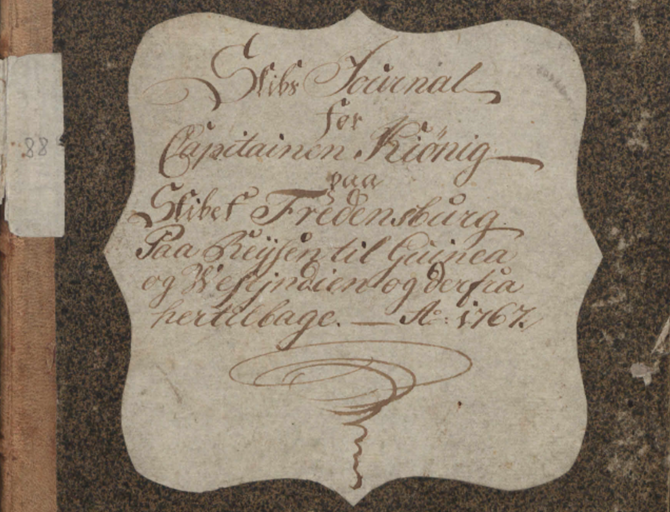 Skibs Journal
før
Capitainen Kiönig
paa
Skibet Fredensburg
Paa Reÿsen til Guinea
og Westjndien og derfra
hertilbage. — Ao: 1767.
88